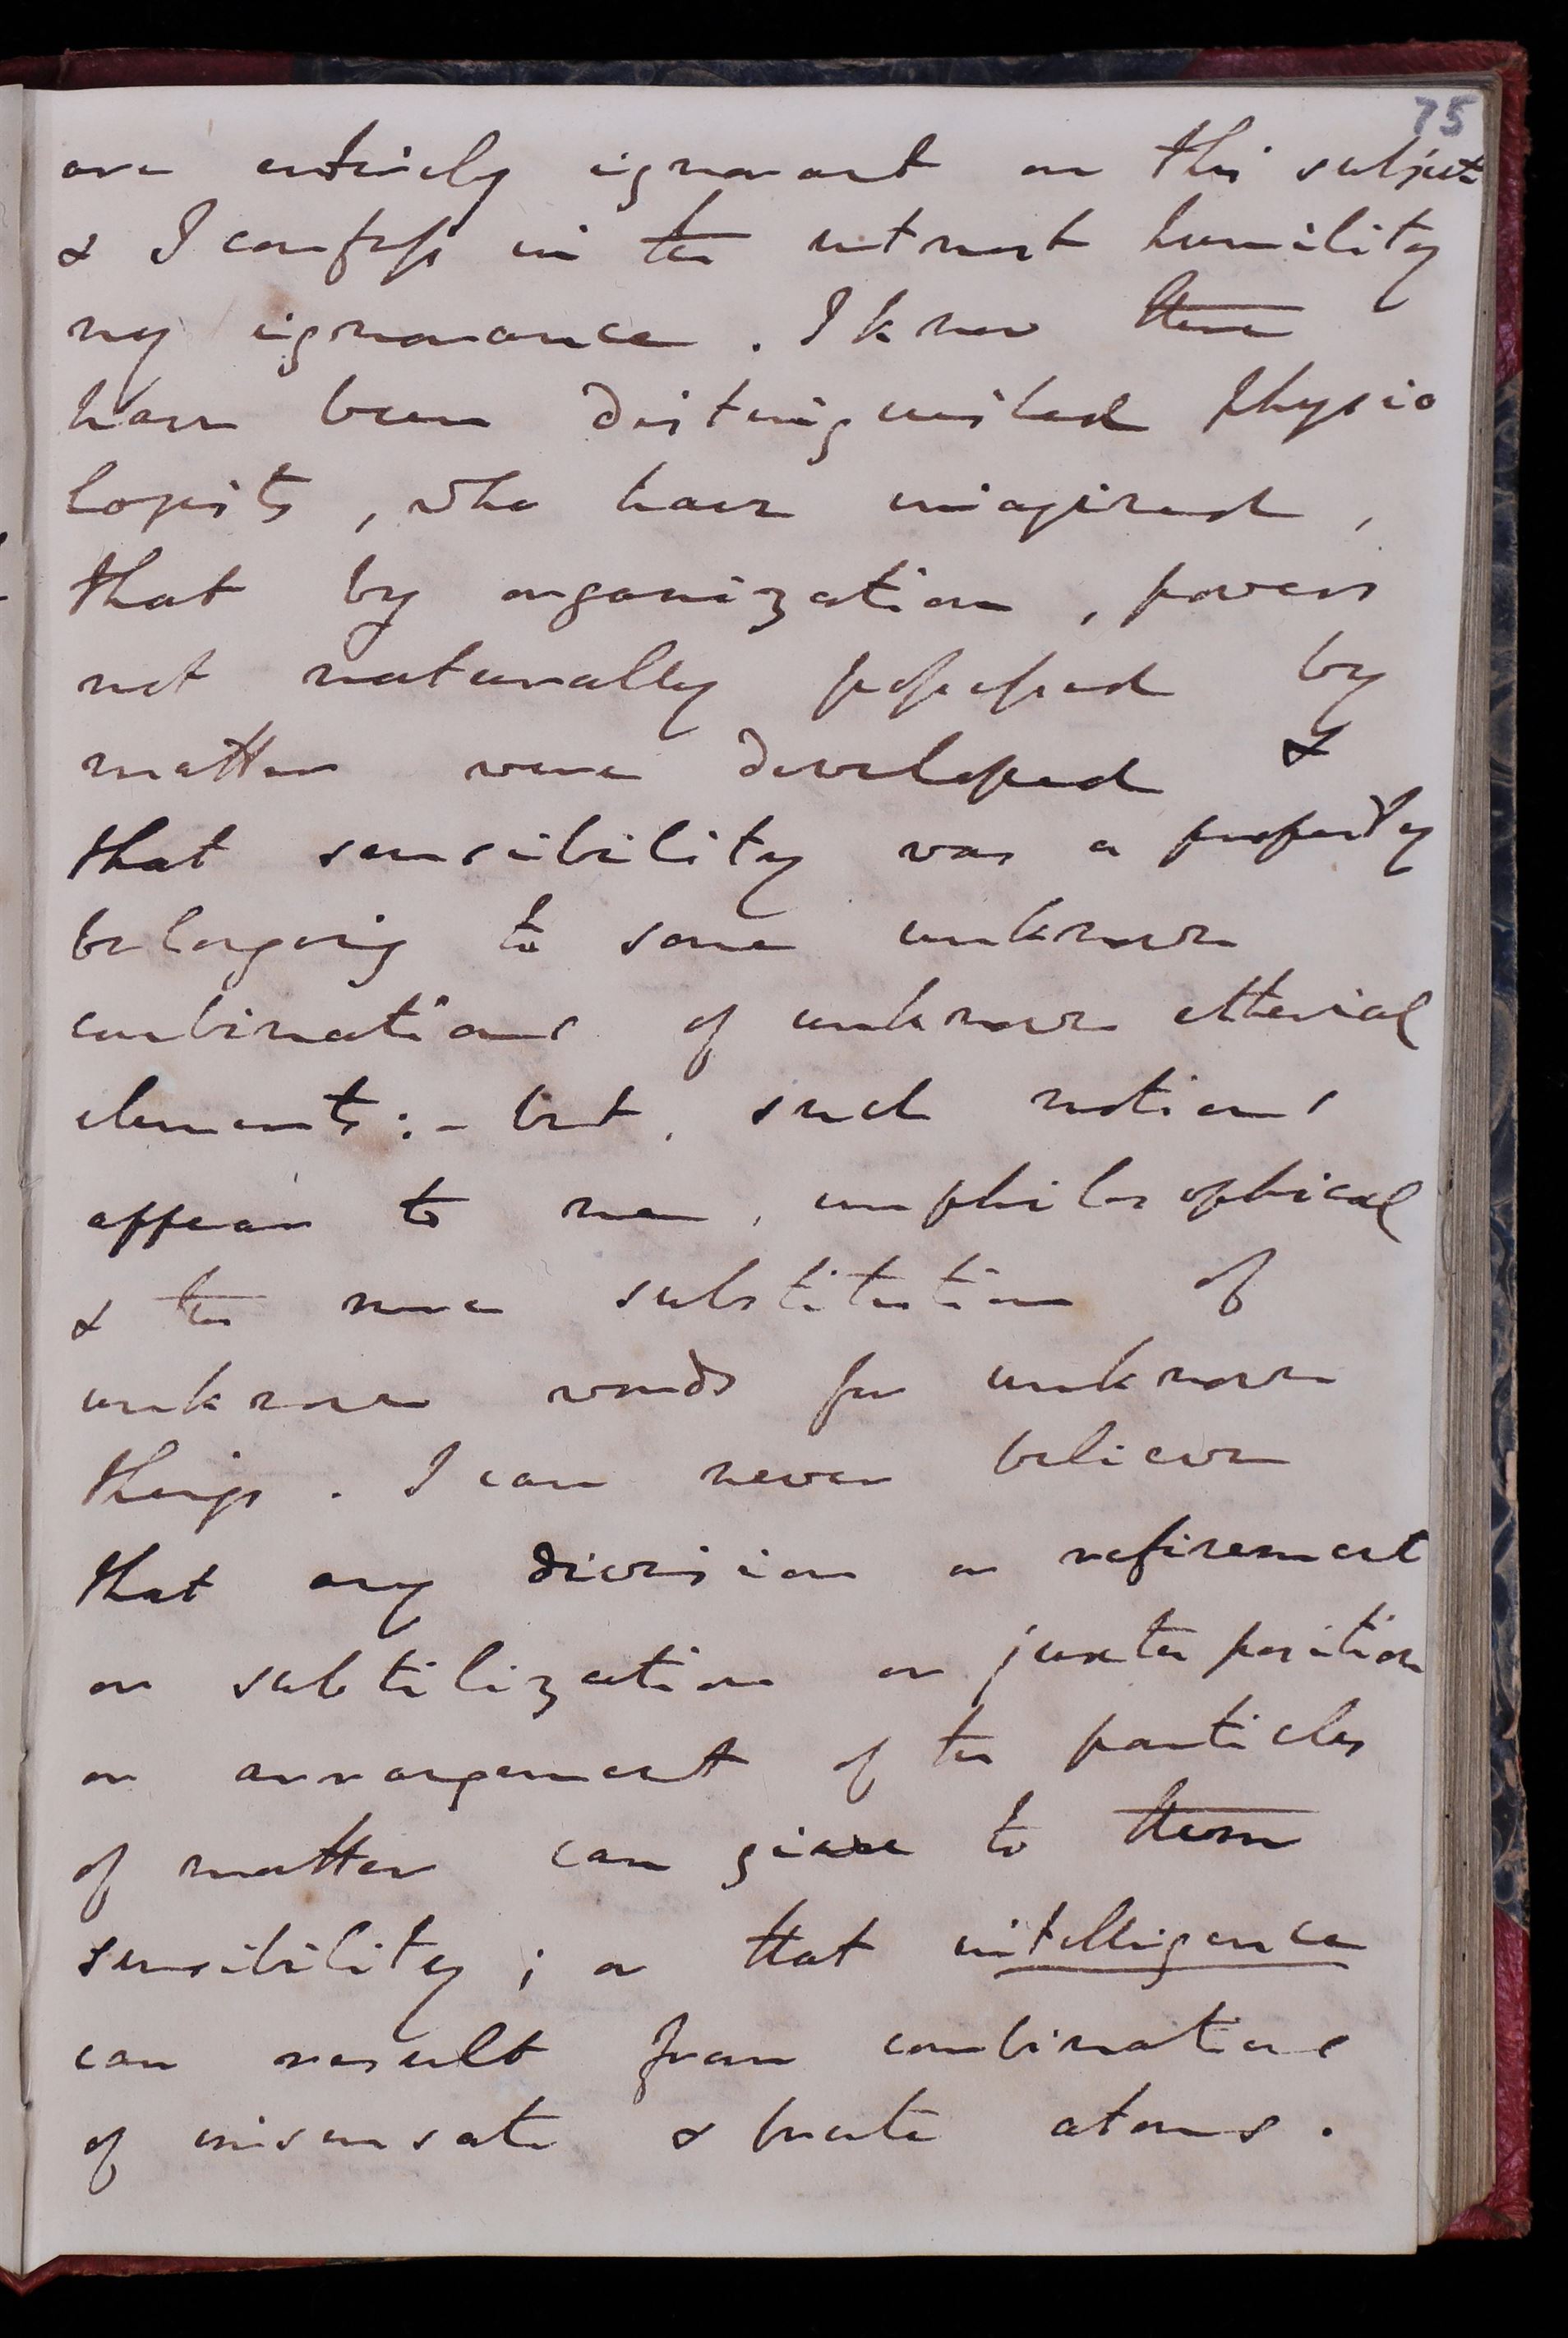 75
are entirely ignorant on this subject
& I confess in the utmost humility
my ignorance. I know there
have been distinguished physio
logists, who have imagined,
that by organization, powers
not naturally possessed by
matter were developed &
that sensibility was a property
belonging to some unknown
combinations of unknown etherial
elements:- but, such notions
appear to me, unphilosophical
& the mere substitution of
unknown words for unknown
things. I can never believe
that any division or refinement
or subtilization or juxta position
or arrangement of the particles
of matter can give to them
sensibility; or that intelligence
can result from combinations
of insensate & brute atoms.